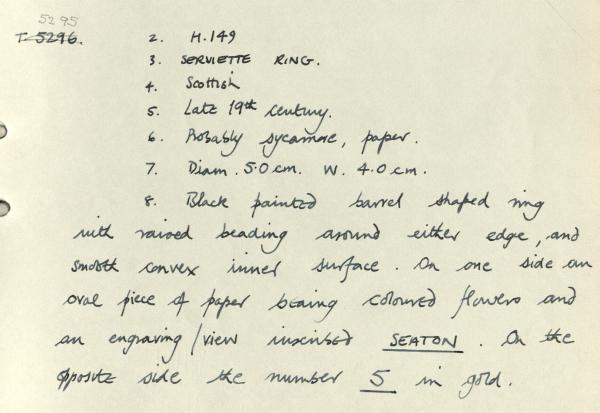 5295
T-5296. 2. H.149
3. SERVIETTE RING.
4. Scottish
5. Late 19th century.
6. Probably sycamore, paper.
7. Diam. 5.0 cm. W. 4.0 cm.
8. Black painted barrel shaped ring
with raised beading around either edge, and
smooth convex inner surface. On one side an
oval piece of paper bearing coloured flowers and
an engraving/view inscribed SEATON. On the
opposite side the number 5 in gold.